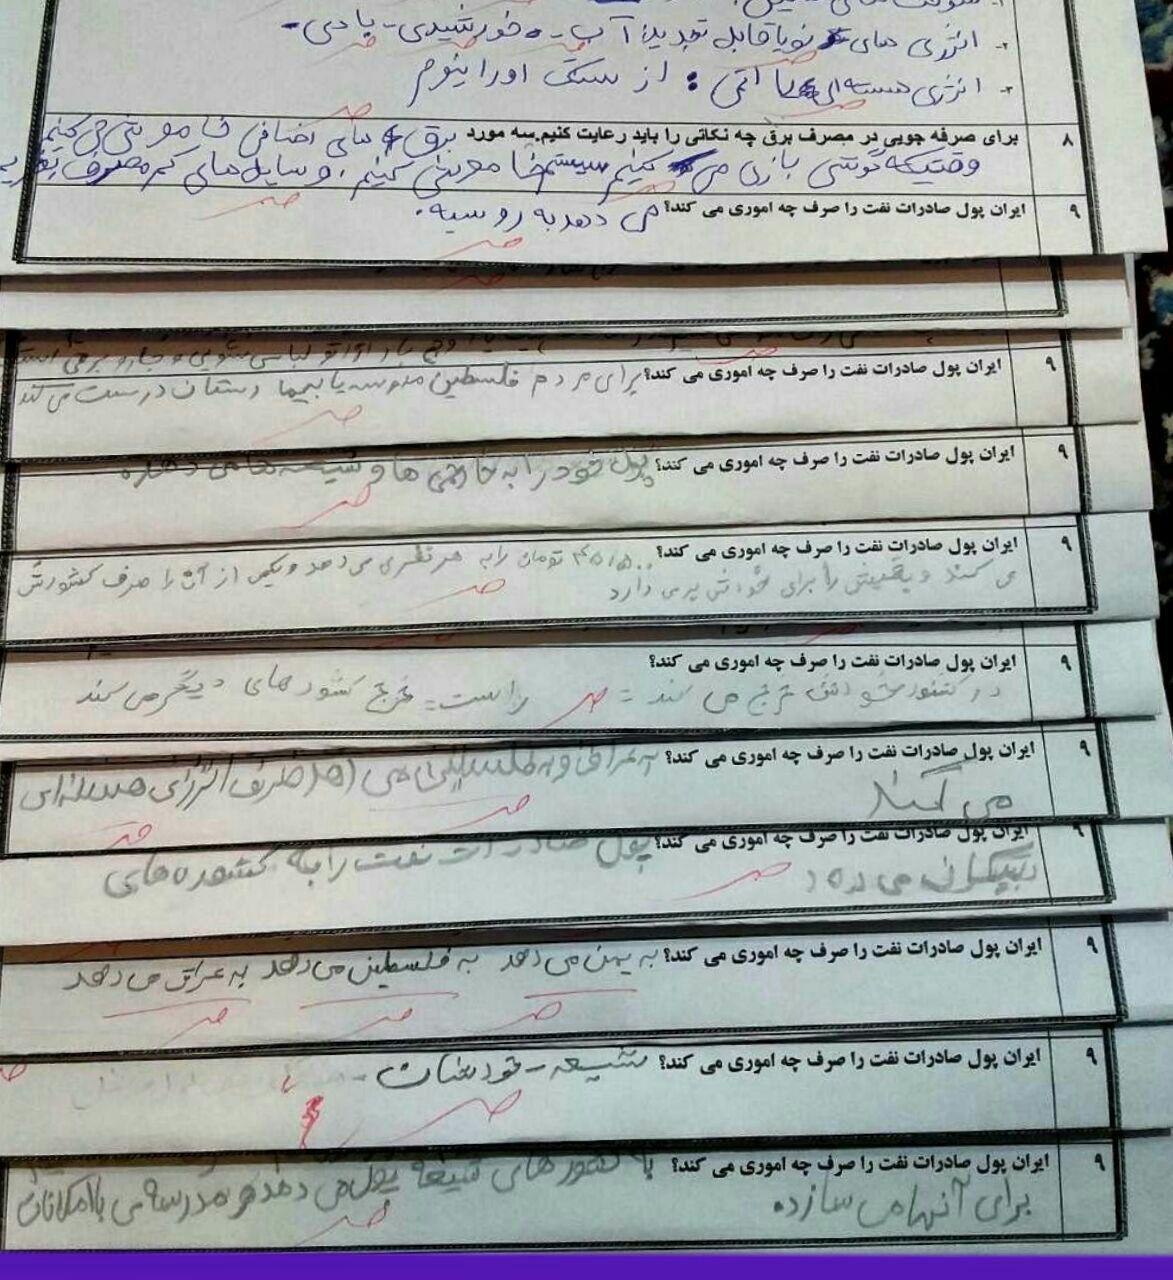 ۲- انرژی های نو یا قابل تجدید: آب - خورشیدی - بادی -
۳- انرژی هسته ای یا اتمی: از سنگ اورانیوم
۸ برای صرفه جویی در مصرف برق چه نکاتی را باید رعایت کنیم. سه مورد برق های اضافی خاموش می کنیم
وقتیکه گوشی بازی می کنیم سیستم خاموش کنیم، وسایل های کم مصرف
۹ ایران پول صادرات نفت را صرف چه اموری می کند؟ می دهد به روسیه.
۹ ایران پول صادرات نفت را صرف چه اموری می کند؟ برای مردم فلسطین مدرسه یا بیمارستان درست می کند
۹ ایران پول صادرات نفت را صرف چه اموری می کند؟ پول خود را به خارجی ها و شیعه ها می دهد
۹ ایران پول صادرات نفت را صرف چه اموری می کند؟ تومان را به هر نفری می دهد و یکمی از آن را صرف کشورش
می کند و بقیش را برای خودش برمی دارد
۹ ایران پول صادرات نفت را صرف چه اموری می کند؟
در کشور خودش خرج می کند = راست = خرج کشورهای دیگر می کند
۹ ایران پول صادرات نفت را صرف چه اموری می کند؟ به عراق و فلسطین می دهد صرف انرژی هسته ای
می کند
۹ ایران پول صادرات نفت را صرف چه اموری می کند؟ پول صادرات نفت را به کشورهای
دیگران می دهد
۹ ایران پول صادرات نفت را صرف چه اموری می کند؟ به یمن می دهد به فلسطین می دهد به عراق می دهد
۹ ایران پول صادرات نفت را صرف چه اموری می کند؟ شیعه - خودشان -
۹ ایران پول صادرات نفت را صرف چه اموری می کند؟ به کشورهای شیعه پول می دهد و مدرسه ی با امکانات
برای آنها می سازد.